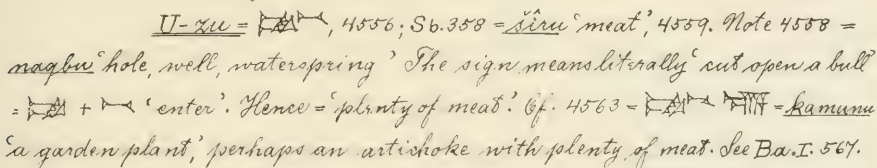 U-zu = 𒍜, 4556; Sb. 358 = šîru ‘meat’, 4559. Note 4558 =
naqbu ‘hole, well, waterspring’ The sign means literally ‘cut open a bull’
= + ‘enter’. Hence = ‘plenty of meat’. Cf. 4563 = = kamunu
‘a garden plant’, perhaps an artichoke with plenty of meat. See Ba. I. 567.